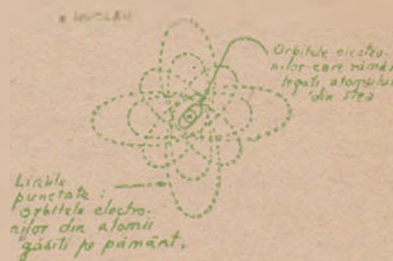 Orbitele electro-
nilor care rămân
legați atomului
din stea
Liniile
punctate:
orbitele electro-
nilor din atomii
găsiți pe pământ.